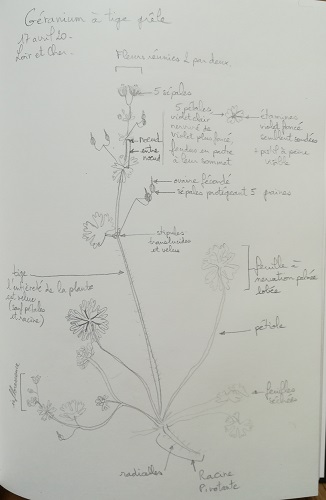 Géranium à tige grêle
17 avril 20.
Loir et Cher.
Fleurs réunies 2 par deux
5 sépales
5 pétales
violet clair
nervuré de
violet plus foncé,
fendus en
à leur sommet
étamines
violet foncé
semblent soudées
+ pistil à peine
visible
noeud
entre
noeud
ovaire fécondé
sépales protégeant 5 graines
stipules
translucides
et velus
tige
l'intégralité de la plante
est velue
(sauf pétales
et racine)
feuille à
nervation palmée
lobée
pétiole
feuilles
séchées
radicelles
Racine
Pivotante